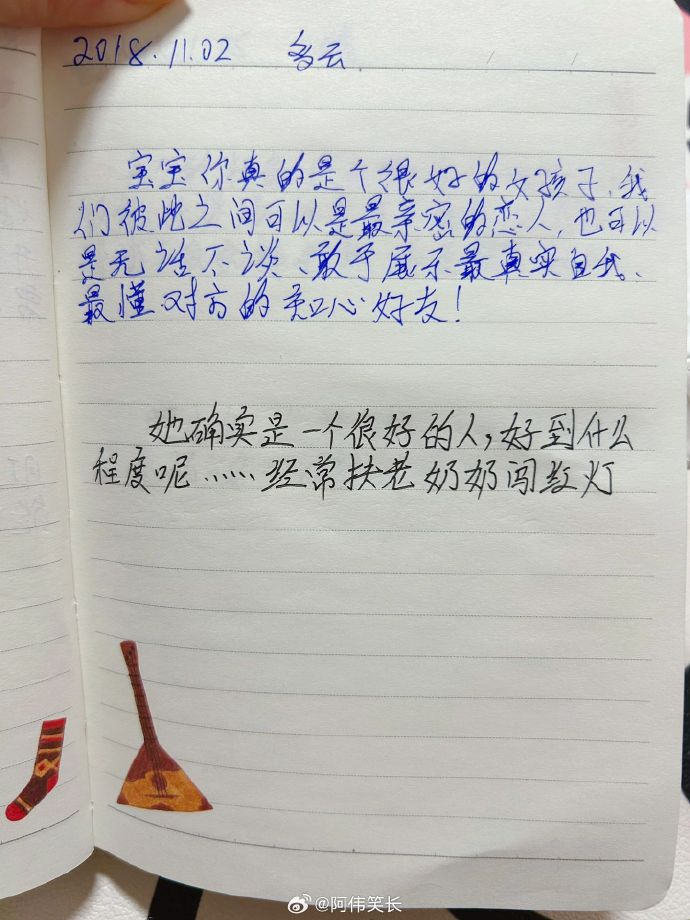 2018.11.02 多云
宝宝你真的是个很好的女孩子,我
们彼此之间可以是最亲密的恋人,也可以
是无话不谈、敢于展示最真实自我、
最懂对方的知心好友!
她确实是一个很好的人,好到什么
程度呢……经常扶老奶奶闯红灯
@阿伟笑长